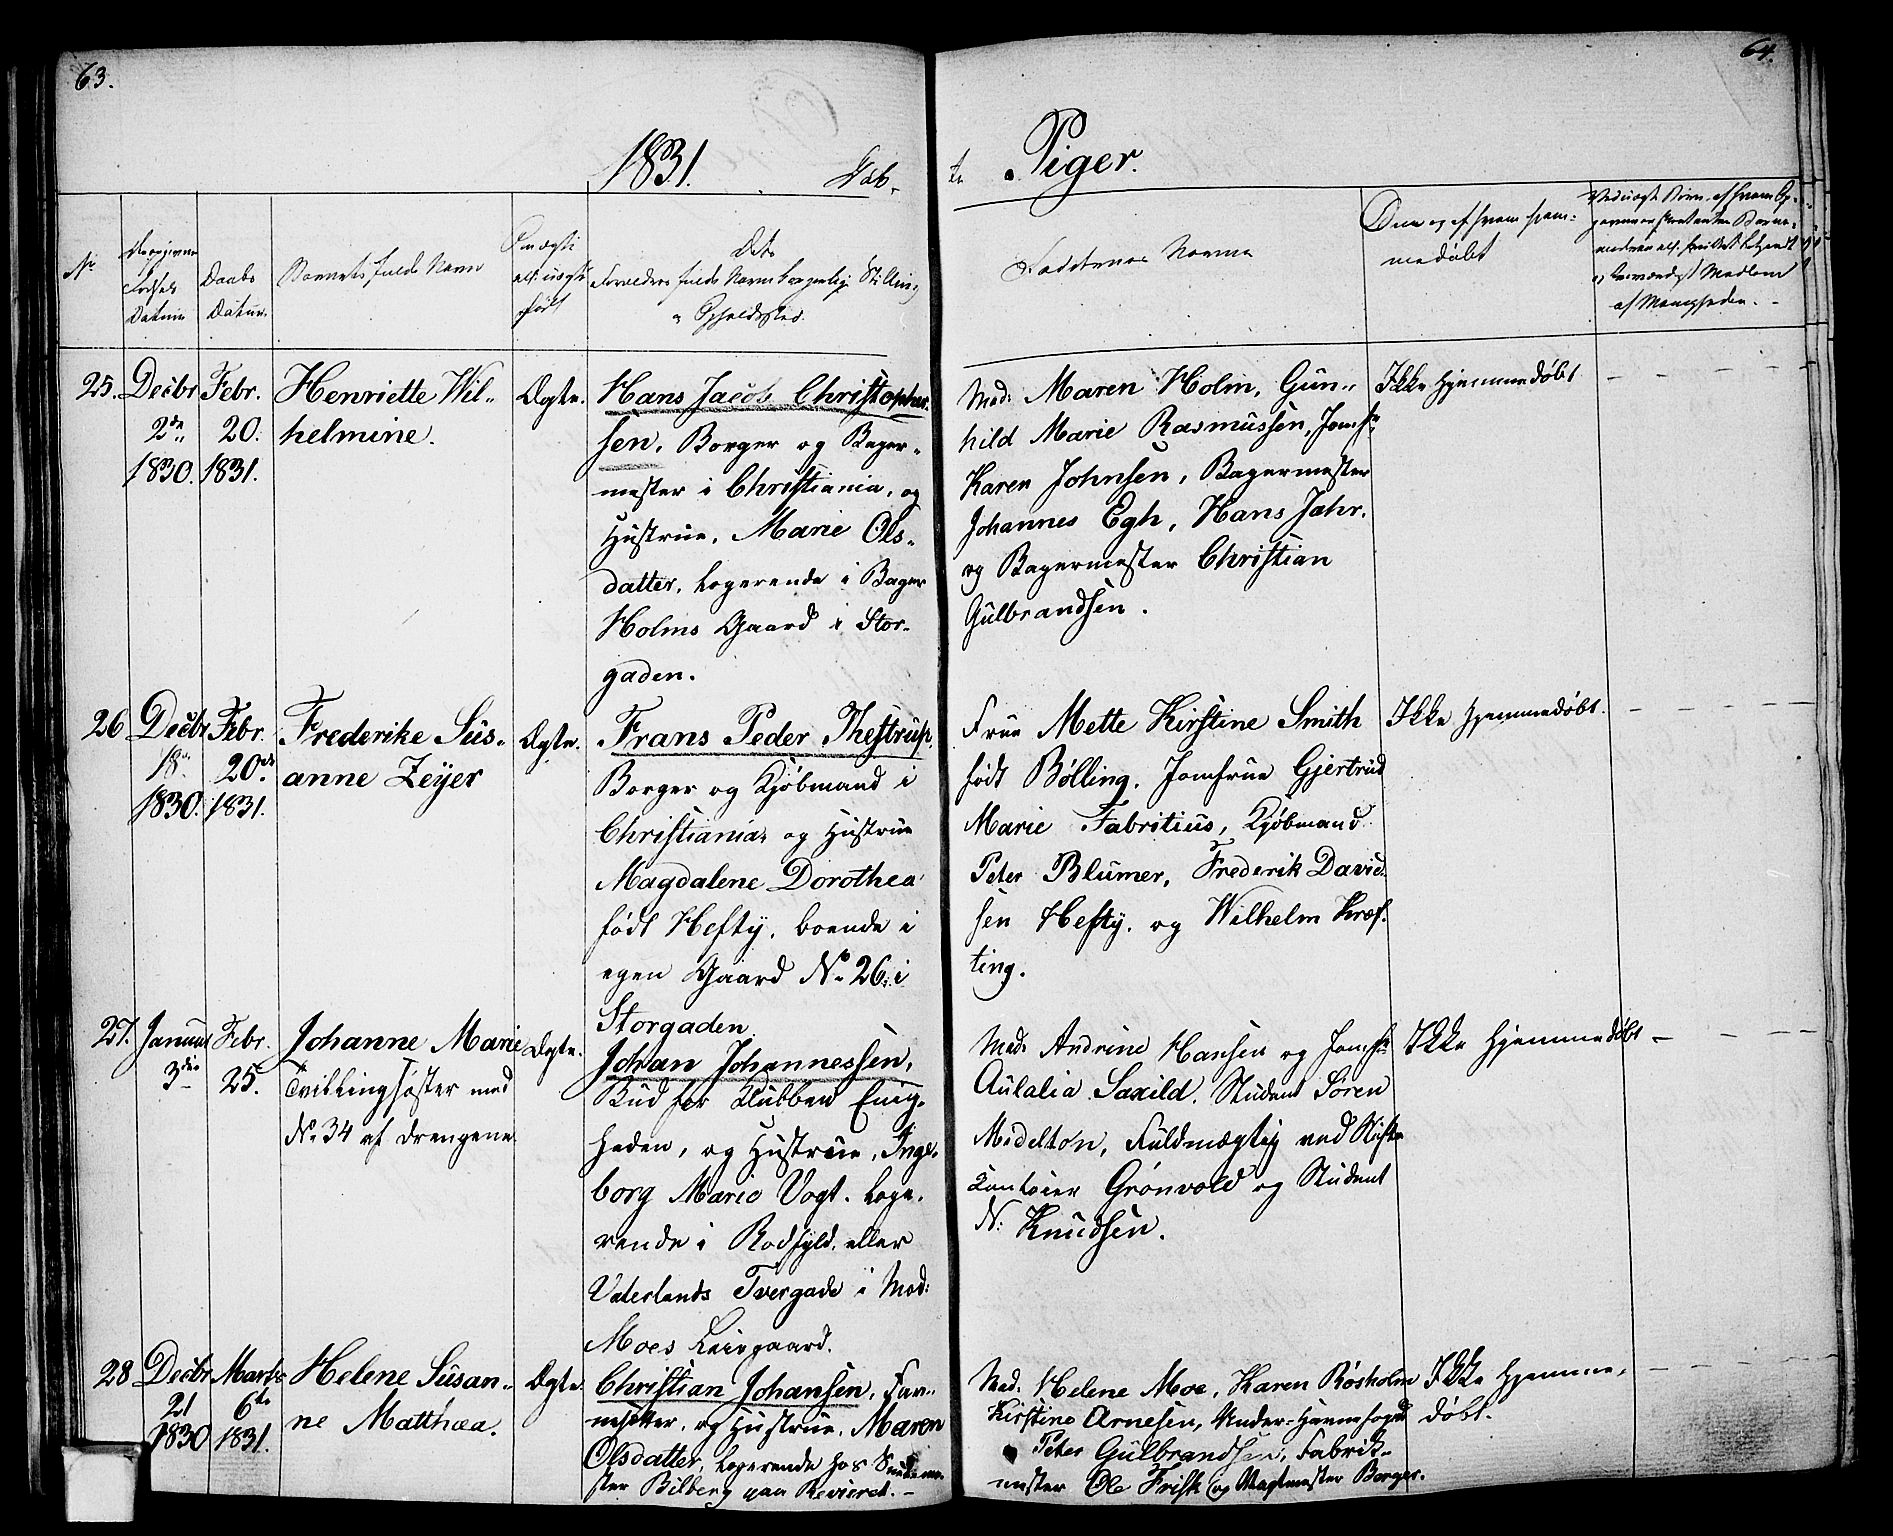 63.
64.
1831.
Døb-
te Piger.
No
Fødsels
Datum
Daabs
Datum.
Barnets fulde Navn
ægte
født
Forældres fulde Navn borgerlig Stilling
og Opholdssted.
Faddernes Navne
Om og af hvem hjem-
medøbt
af Menigheden. -
25. Decbr
2den
1830.
Febr.
20.
1831.
Henriette Wil-
helmine.
Ægte.
Hans Jacob Christopher-
sen, Borger og Bager-
mester i Christiania, og
Hustrue, Marie Ols-
datter, logerende i Bager
Holms Gaard i Stor-
gaden.
Mad: Maren Holm, Gun-
hild Marie Rasmussen, Jomfr
Karen Johnsen, Bagermester
Johannes Egh, Hans Jahr.
og Bagermester Christian
Gulbrandsen.
Ikke hjemmedøbt
26 Decbr
18
1830.
Febr.
20de
1831.
Frederike Sus-
anne Zeÿer
Ægte.
Frans Peder Thestrup,
Borger og Kjøbmand i
Christiania, og Hustrue
Magdalene Dorothea
født Hefty, boende i
egen Gaard No 26 i
Storgaden.
Frue Mette Kirstine Smith
født Bølling. Jomfrue Gjertrud
Marie Fabritius, Kjøbmand
Peter Blumer, Frederik David
sen Hefty. og Wilhelm Kræf-
ting.
Ikke hjemmedøbt.
27. Januar
3die
Febr.
25.
Johanne Marie
Tvillingsøster med
No 34 af Drengene.
Ægte.
Johan Johannessen,
Bud for Klubben Enig-
heden, og Hustrue, Inge-
borg Marie Vogt. loge-
rende i Rodfyld. eller
Vaterlands Tvergade i Mad:
Moes Leiegaard.
Mad: Andrine Hansen og Jomfr
Aulalia Saxild. Student Søren
Midelton, Fuldmægtig ved Stifts
Contoier Grønvold og Student
N: Knudsen.
Ikke hjemmedøbt
28 Decbr
21
1830
Marts
6te
1831.
Helene Susan-
ne Matthæa.
Ægte.
Christian Johansen,
og Hustrue, Maren
Olsdatter, logerende hos
Bilberg paa Revieret. -
Mad. Helene Moe, Karen Røsholm
Kirstine Arnesen, Under-Havnefoged
Peter Gulbrandsen, Fabrik-
mester Ole Frisk og Vagtmester Borger.
Ikke hjemme-
døbt.